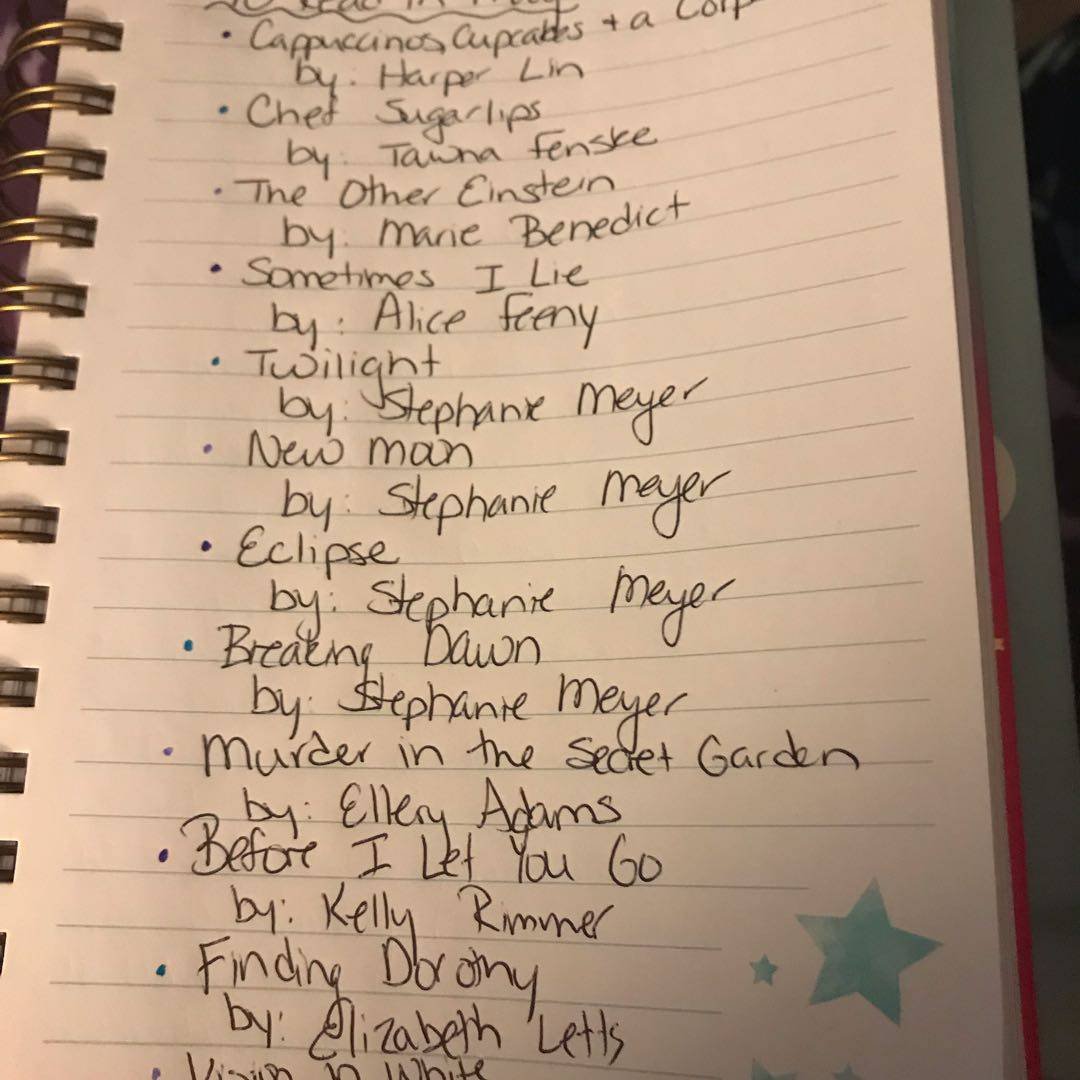 • Cappuccinos, Cupcakes + a
by: Harper Lin
• Chef Sugarlips
by: Tawna Fenske
• The Other Einstein
by: Marie Benedict
• Sometimes I Lie
by: Alice Feeny
• Twilight
by: Stephanie Meyer
• New moon
by: Stephanie Meyer
• Eclipse
by: Stephanie Meyer
• Breaking Dawn
by: Stephanie Meyer
• Murder in the Secret Garden
by: Ellery Adams
• Before I Let You Go
by: Kelly Rimmer
• Finding Dorothy
by: Elizabeth Letts
• Vision in White